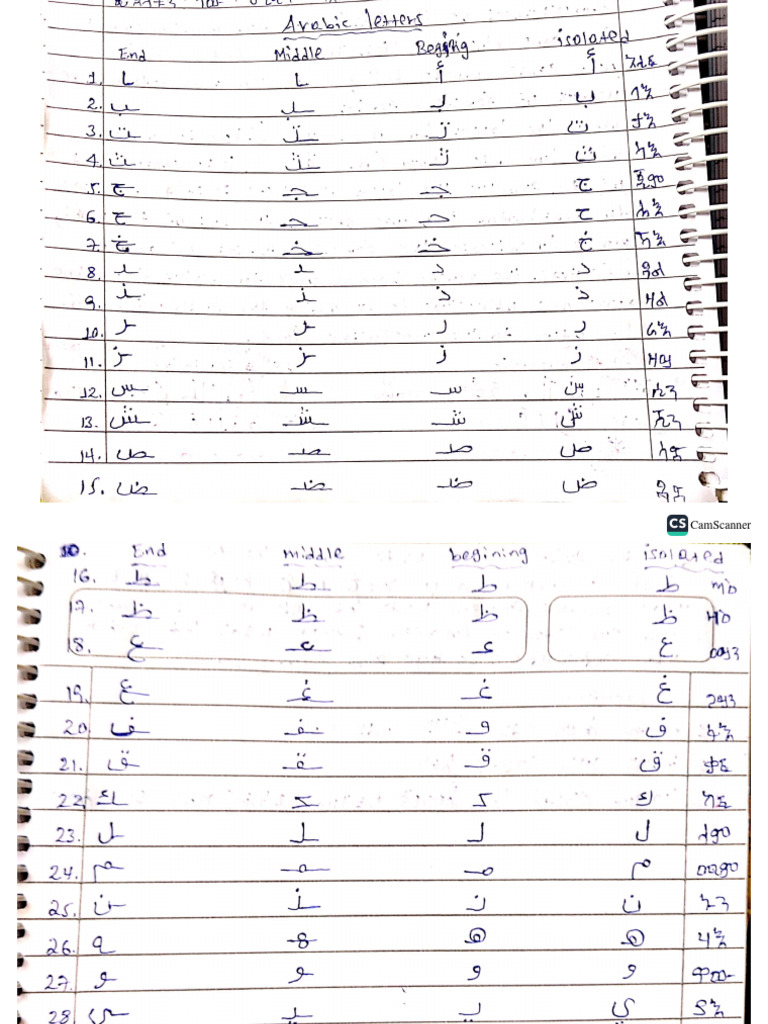 Arabic letters
End Middle Begining isolated
1. ـا ـا أ أ አሊፍ
2. ـب ـبـ بـ ب ባእ
3. ـت ـتـ تـ ت ታእ
4. ـث ـثـ ثـ ث
5. ـج ـجـ جـ ج ጂም
6. ـح ـحـ حـ ح ሐእ
7. ـخ ـخـ خـ خ ኻእ
8. ـد ـد د د ዳል
9. ـذ ـذ ذ ذ ዛል
10. ـر ـر ر ر ራእ
11. ـز ـز ز ز ዛይ
12. ـس ـسـ سـ س ሲን
13. ـش ـشـ شـ ش ሺን
14. ـص ـصـ صـ ص ሷድ
15. ـض ـضـ ضـ ض
CS CamScanner
End middle begining isolated
16. ـط ـطـ طـ ط ጧ
17. ـظ ـظـ ظـ ظ
18. ـع ـعـ عـ ع ዐይን
19. ـغ ـغـ غـ غ ገይን
20. ـف ـفـ فـ ف ፋእ
21. ـق ـقـ قـ ق ቃፍ
22. ـك ـكـ كـ ك ካፍ
23. ـل ـلـ لـ ل ላም
24. ـم ـمـ مـ م መም
25. ـن ـنـ نـ ن ኑን
26. ـه ـهـ هـ ه ሃእ
27. ـو ـو و و ዋው
28 ـي ـيـ يـ ي ያእ